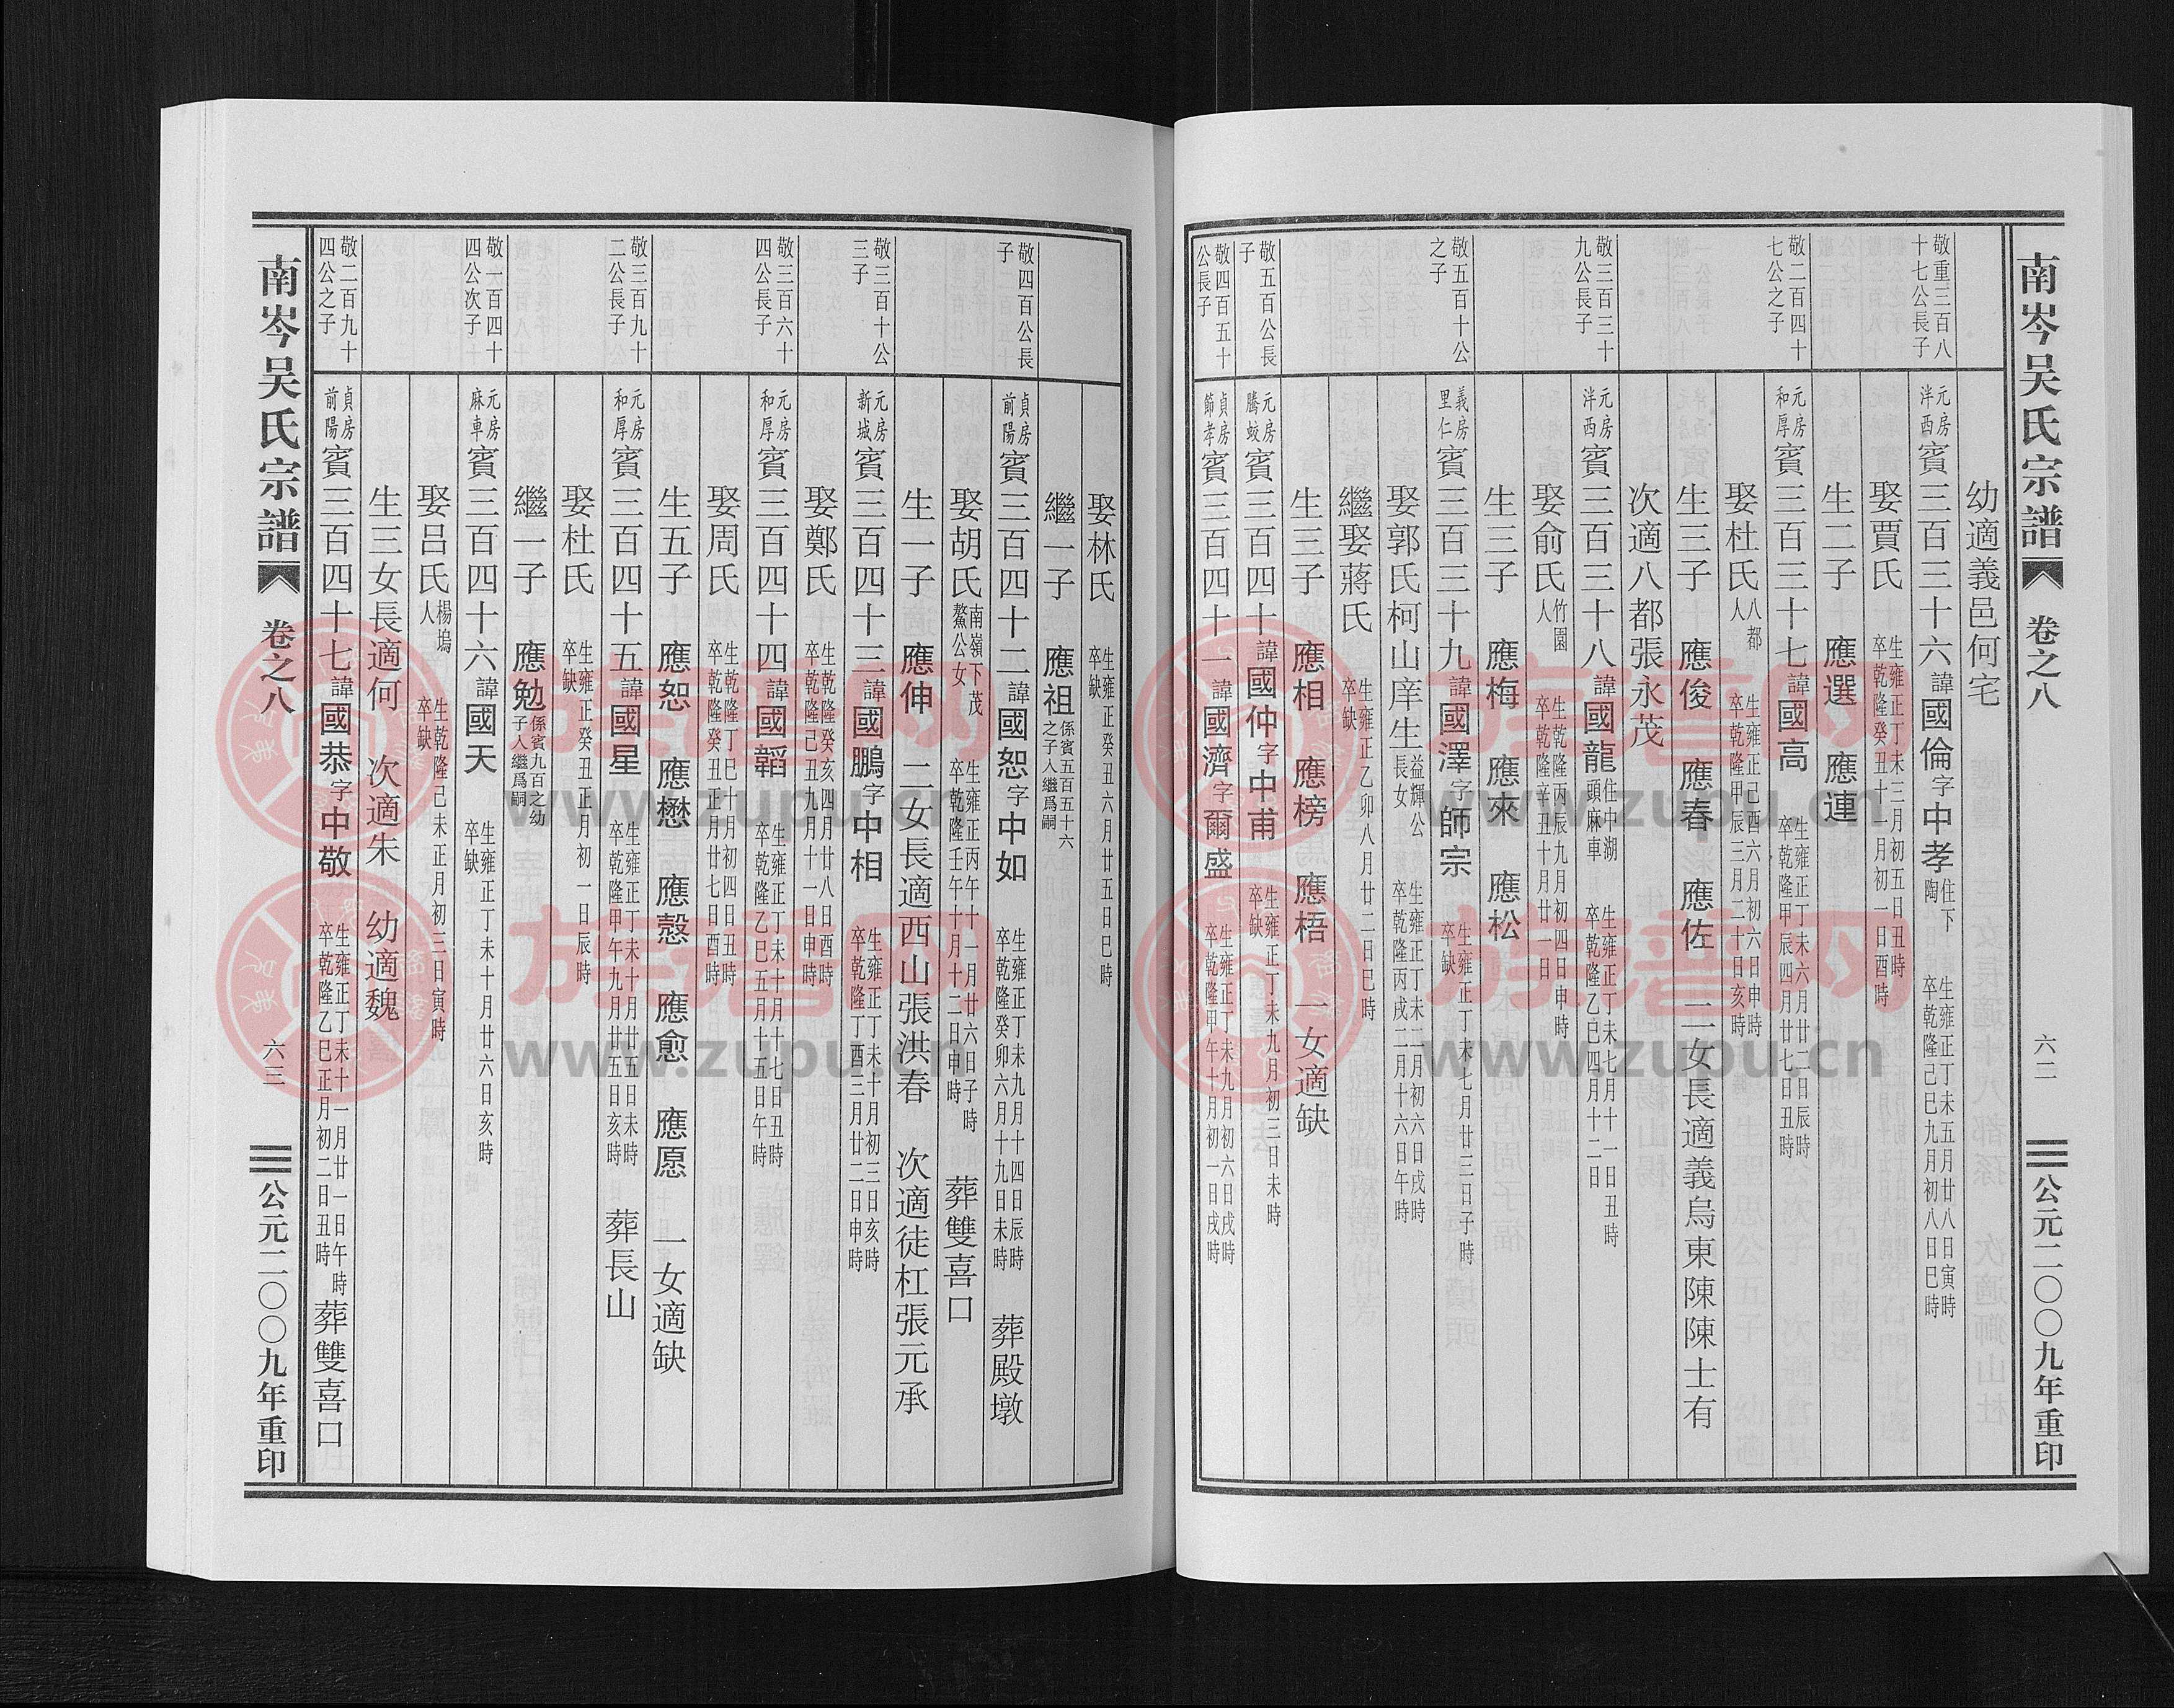 南岑吴氏宗譜 卷之八 六二 公元二〇〇九年重印
幼適義邑何宅
敬重三百八十七公長子 元房洋西 賓三百三十六 諱國倫 字中孝 住下陶 生雍正丁未五月廿八日寅時 卒乾隆己巳九月初八日巳時
娶賈氏 生雍正丁未三月初五日丑時 卒乾隆癸丑十一月初一日酉時
生二子 應選 應連
敬二百四十七公之子 元房和厚 賓三百三十七 諱國高 生雍正丁未六月廿二日辰時 卒乾隆甲辰四月廿七日丑時
娶杜氏 八都人 生雍正己酉六月初六日申時 卒乾隆甲辰三月二十日亥時
生三子 應俊 應春 應佐 二女長適義烏東陳陳士有
次適八都張永茂
敬三百三十九公長子 元房洋西 賓三百三十八 諱國龍 住中湖頭麻車 生雍正丁未七月十一日丑時 卒乾隆乙巳四月十二日
娶俞氏 竹園人 生乾隆丙辰九月初四日申時 卒乾隆辛丑十月廿一日
生三子 應梅 應來 應松
敬五百十公之子 義房里仁 賓三百三十九 諱國澤 字師宗 生雍正丁未七月廿三日子時 卒缺
娶郭氏柯山庠生 益輝公長女 生雍正丁未二月初六日戌時 卒乾隆丙戌二月十六日午時
繼娶蔣氏 生雍正乙卯八月廿二日巳時 卒缺
生三子 應相 應榜 應梧 一女適缺
敬五百公長子 元房騰蛟 賓三百四十 諱國仲 字中甫 生雍正丁未九月初三日未時 卒缺
敬四百五十公長子 貞房節孝 賓三百四十一 諱國濟 字爾盛 生雍正丁未九月初六日戌時 卒乾隆甲午十月初一日戌時
娶林氏 生雍正癸丑六月廿五日巳時 卒缺
繼一子 應祖 係賓五百五十六之子人繼爲嗣
敬四百公長子 貞房前陽 賓三百四十二 諱國恕 字中如 生雍正丁未九月十四日辰時 卒乾隆癸卯六月十九日未時 葬殿墩
娶胡氏 南嶺下茂鰲公女 生雍正丙午十一月廿六日子時 卒乾隆壬午十月十二日申時 葬雙喜口
生一子 應伸 二女長適西山張洪春 次適徒杠張元承
敬三百十公三子 元房新城 賓三百四十三 諱國鵬 字中相 生雍正丁未十月初三日亥時 卒乾隆丁酉三月廿二日申時
娶鄭氏 生乾隆癸亥四月廿八日酉時 卒乾隆己丑九月十一日申時
敬三百六十四公長子 元房和厚 賓三百四十四 諱國韜 生雍正丁未十月十七日丑時 卒乾隆乙巳五月十五日午時
娶周氏 生乾隆丁巳十月初四日丑時 卒乾隆癸丑正月廿七日酉時
生五子 應恕 應懋 應愨 應愈 應愿 一女適缺
敬三百九十二公長子 元房和厚 賓三百四十五 諱國星 生雍正丁未十月廿五日未時 卒乾隆甲午九月廿五日亥時 葬長山
娶杜氏 生雍正癸丑正月初一日辰時 卒缺
繼一子 應勉 係賓九百之幼子人繼爲嗣
敬一百四十四公次子 元房麻車 賓三百四十六 諱國天 生雍正丁未十月廿六日亥時 卒缺
娶呂氏 楊塢人 生乾隆己未正月初三日寅時 卒缺
生三女長適何 次適朱 幼適魏
敬二百九十四公之子 貞房前陽 賓三百四十七 諱國恭 字中敬 生雍正丁未十一月廿一日午時 卒乾隆乙巳正月初二日丑時 葬雙喜口
南岑吴氏宗譜 卷之八 六三 公元二〇〇九年重印
族譜网
www.zupu.cn
族譜网
www.zupu.cn
族譜网
www.zupu.cn
族譜网
www.zupu.cn